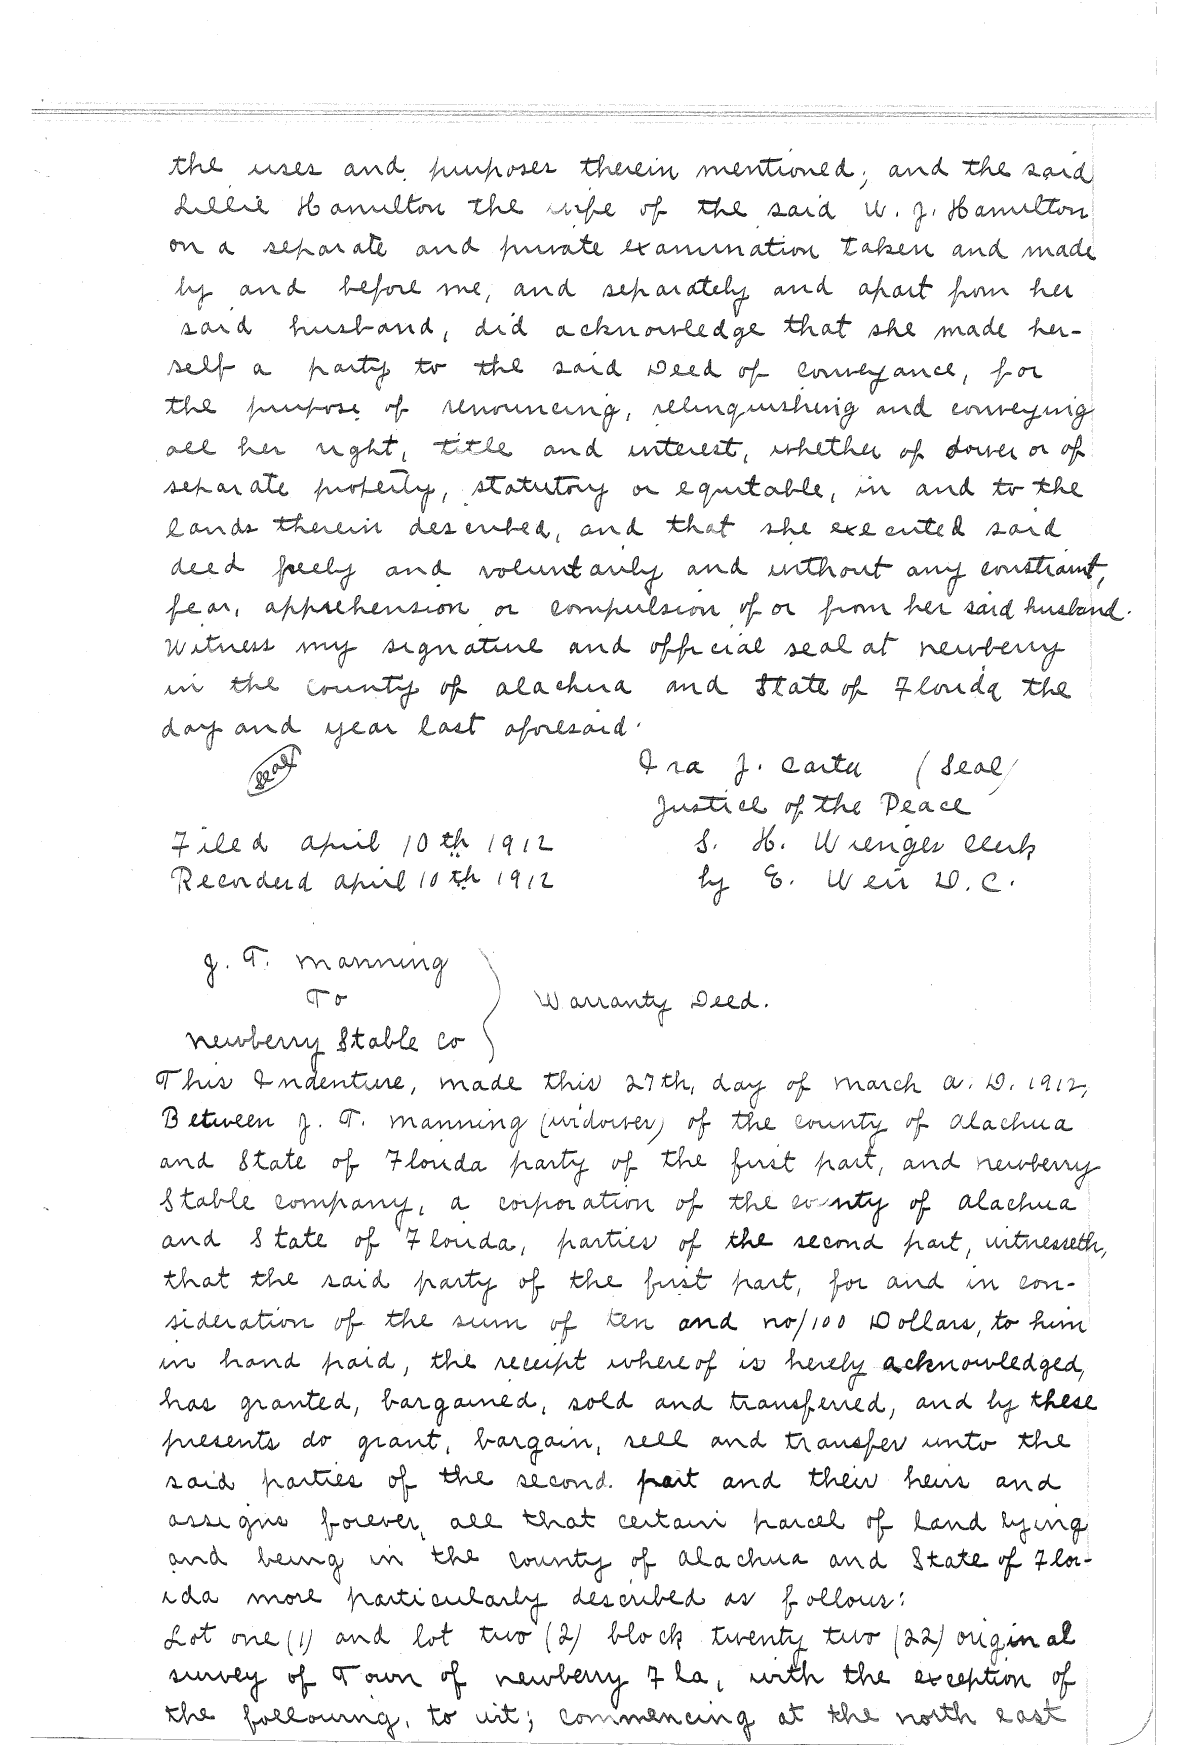 the uses and purposes therein mentioned; and the said
Lillie Hamilton the wife of the said W. J. Hamilton
on a separate and private examination taken and made
by and before me, and separately and apart from her
said husband, did acknowledge that she made her-
self a party to the said Deed of conveyance, for
the purpose of renouncing, relinquishing and conveying
all her right, title and interest, whether of dower or of
separate property, statutory or equitable, in and to the
lands therein described, and that she executed said
deed freely and voluntarily and without any constraint,
fear, apprehension or compulsion of or from her said husband.
Witness my signature and official seal at newberry
in the county of alachua and State of Florida the
day and year last aforesaid.
Seal
Ira J. Carter (Seal)
Justice of the Peace
Filed april 10th 1912
S. H. Wienges Clerk
Recorded april 10th 1912
by E. Weir D.C.
J. T. Manning
To
newberry Stable Co
Warranty Deed.
This Indenture, made this 27th, day of march a. D. 1912,
Between J. T. Manning (widower) of the county of alachua
and State of Florida party of the first part, and newberry
Stable company, a corporation of the county of alachua
and State of Florida, parties of the second part, witnesseth,
that the said party of the first part, for and in con-
sideration of the sum of ten and no/100 Dollars, to him
in hand paid, the receipt whereof is hereby acknowledged,
has granted, bargained, sold and transferred, and by these
presents do grant, bargain, sell and transfer unto the
said parties of the second part and their heirs and
assigns forever, all that certain parcel of land lying
and being in the county of alachua and State of Flor-
ida more particularly described as follows:
Lot one (1) and lot two (2) block twenty two (22) original
survey of Town of newberry Fla, with the exception of
the following, to wit; commencing at the north east